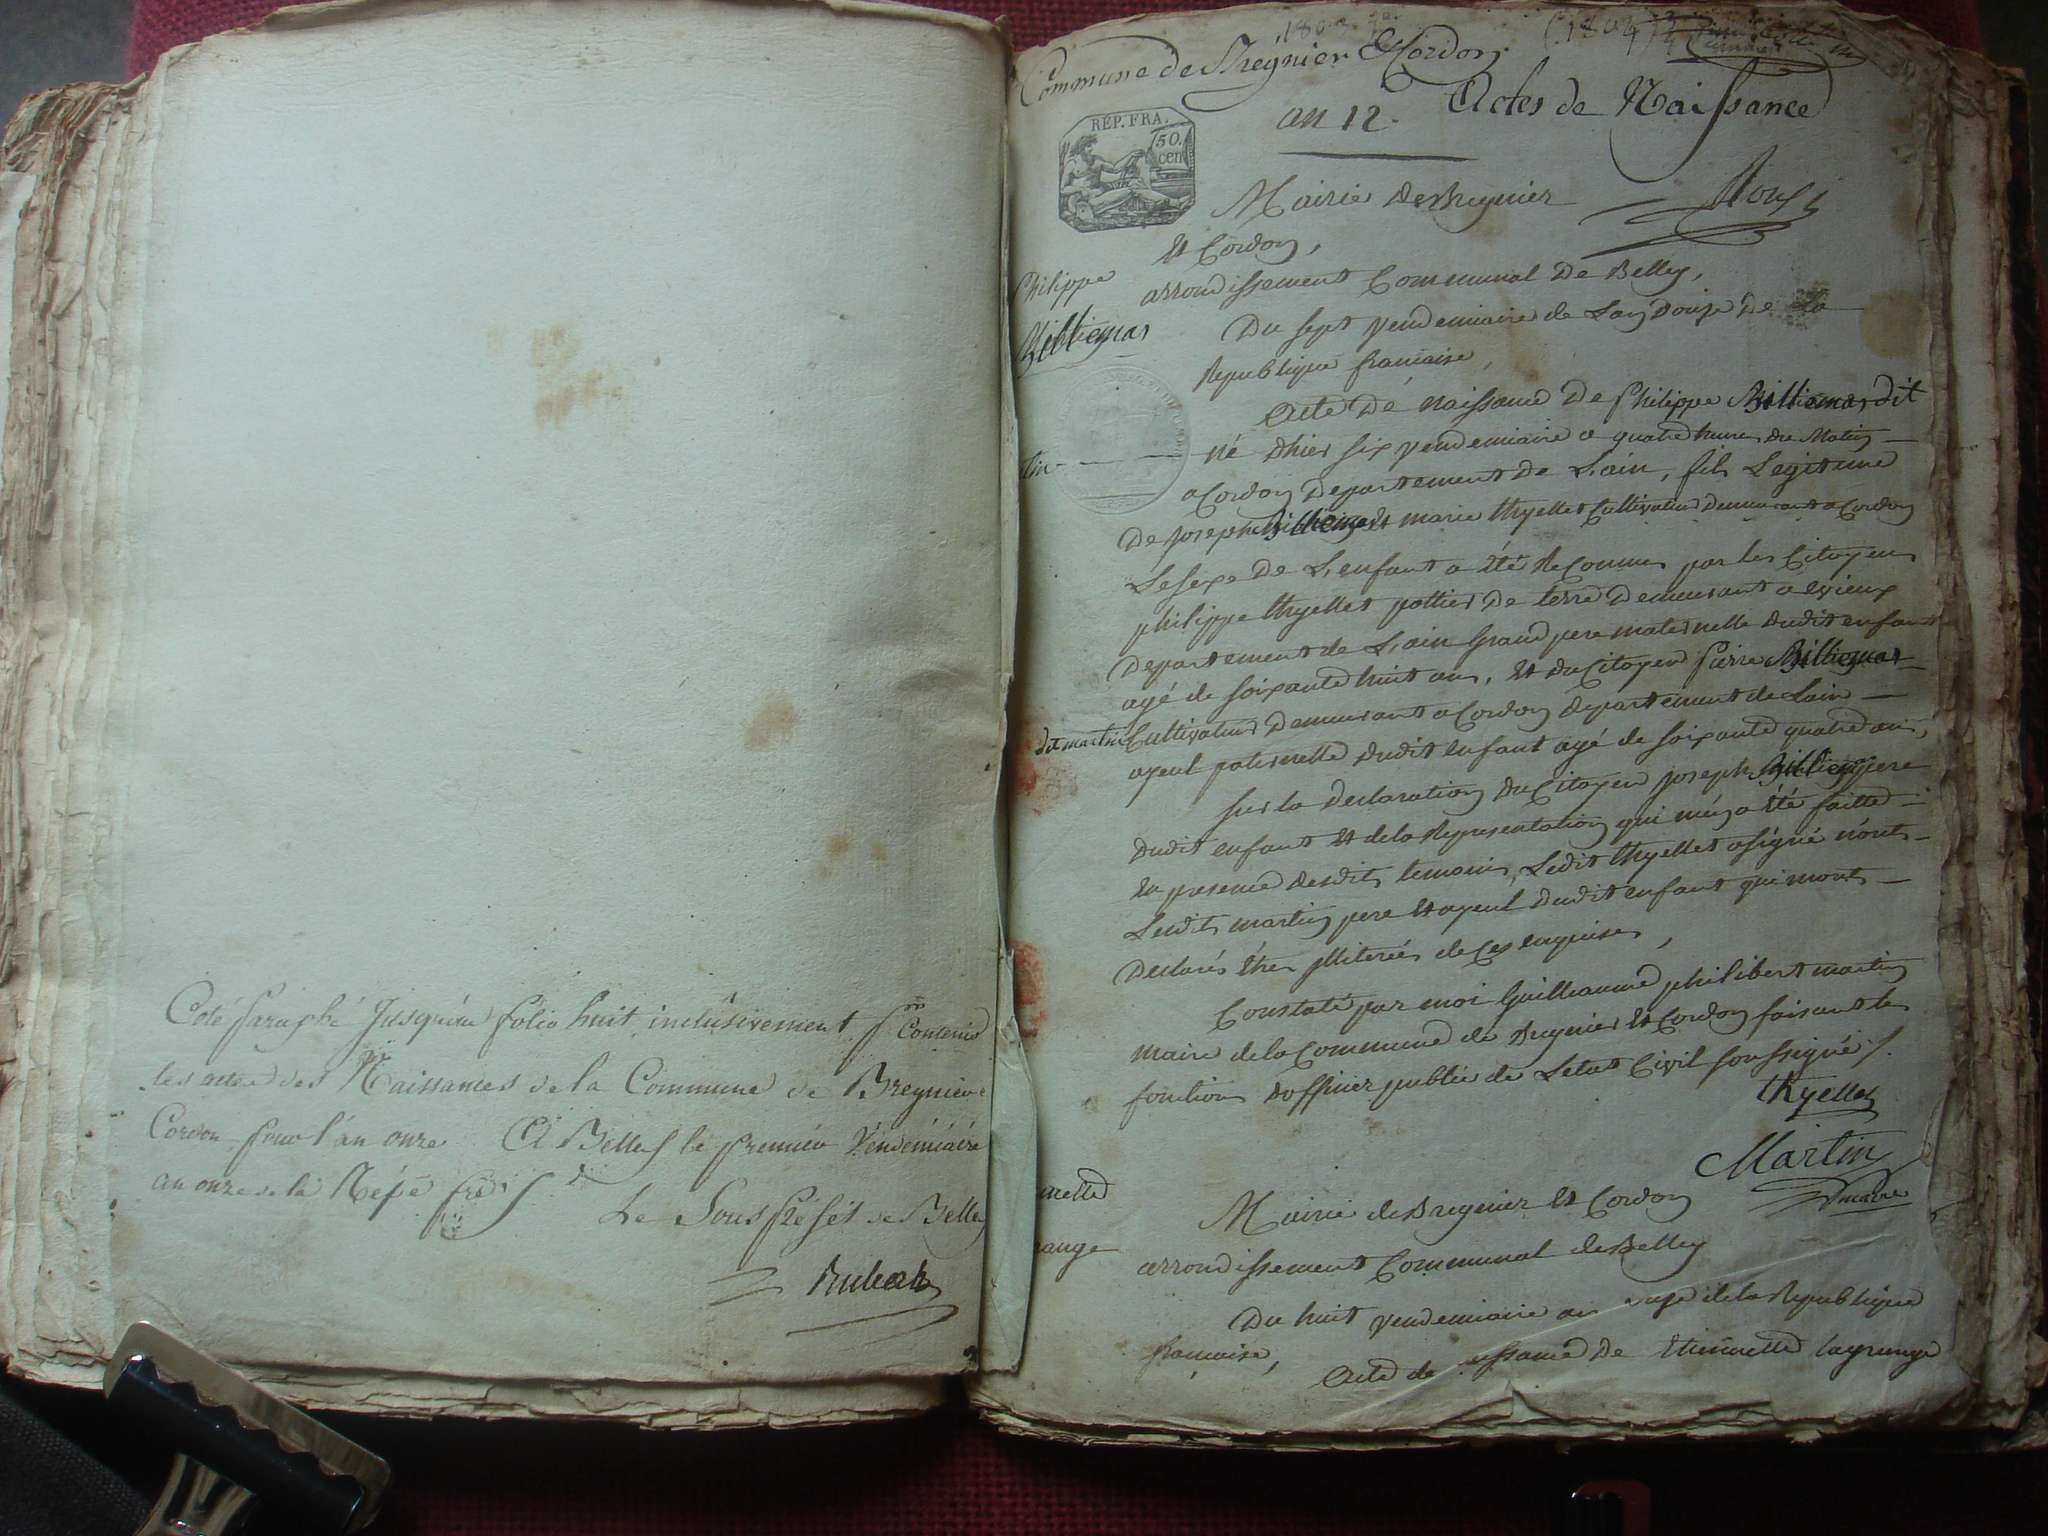 Coté Paraphé Jusqu'au folio huit inclusivement pr Contenir
les actes des Naissances de la Commune de Bregnier
Cordon pour l'an onze A Belley le premier Vendemiaire
an onze de la Répe
Le Sous Préfet de Belley
Commune de Bregnier Cordon
an 12. Actes de Naissance
REP. FRA.
50.
cen
Mairie de Bregnier
Et Cordon,
arrondissement Communal de Belley,
Philippe
Billiemas
Du sept vendemiaire de Lan douze de La
Republique francaise,
acte de naissance de Philippe Billiemas dit
né dhier six vendemiaire a quatre heures du Matin
tin
a Cordon Departement de L'ain, fils Legitime
De joseph Billiemas Et marie thyellet Cultivateurs Demeurant a Cordon
Le sexe de L'enfant a été Reconnu par les Citoyens
philippe thyellet pottier de terre Demeurant a evieux
Departement de L'ain Grand pere maternelle dudit enfant
agé de soixante huit ans, Et du Citoyen pierre Billiemas
dit martin Cultivateur Demeurant a Cordon departement de Lain
ayeul paternelle dudit enfant agé de soixante quatre ans,
sur la declaration du Citoyen joseph pere
dudit enfant Et de la Representation qui m'en a été faitte
en presence desdits temoins, Ledit thyellet a signé n'ont
Lesdits martin pere Et ayeul dudit enfant qui m'ont
Declarés être illiterés de Ces enquises,
Constaté par moi Guilleaume philibert martin
maire de la Commune de Bregnier Et Cordon faisant les
fonctions dofficier public de Letat Civil soussigné /.
thyellet
Martin
maire
Mairie de Bregnier Et Cordon
arrondissement Communal de Belley
nette
range
Du huit vendemiaire an de la Republique
francaise,
acte de De Etiennette lagrange